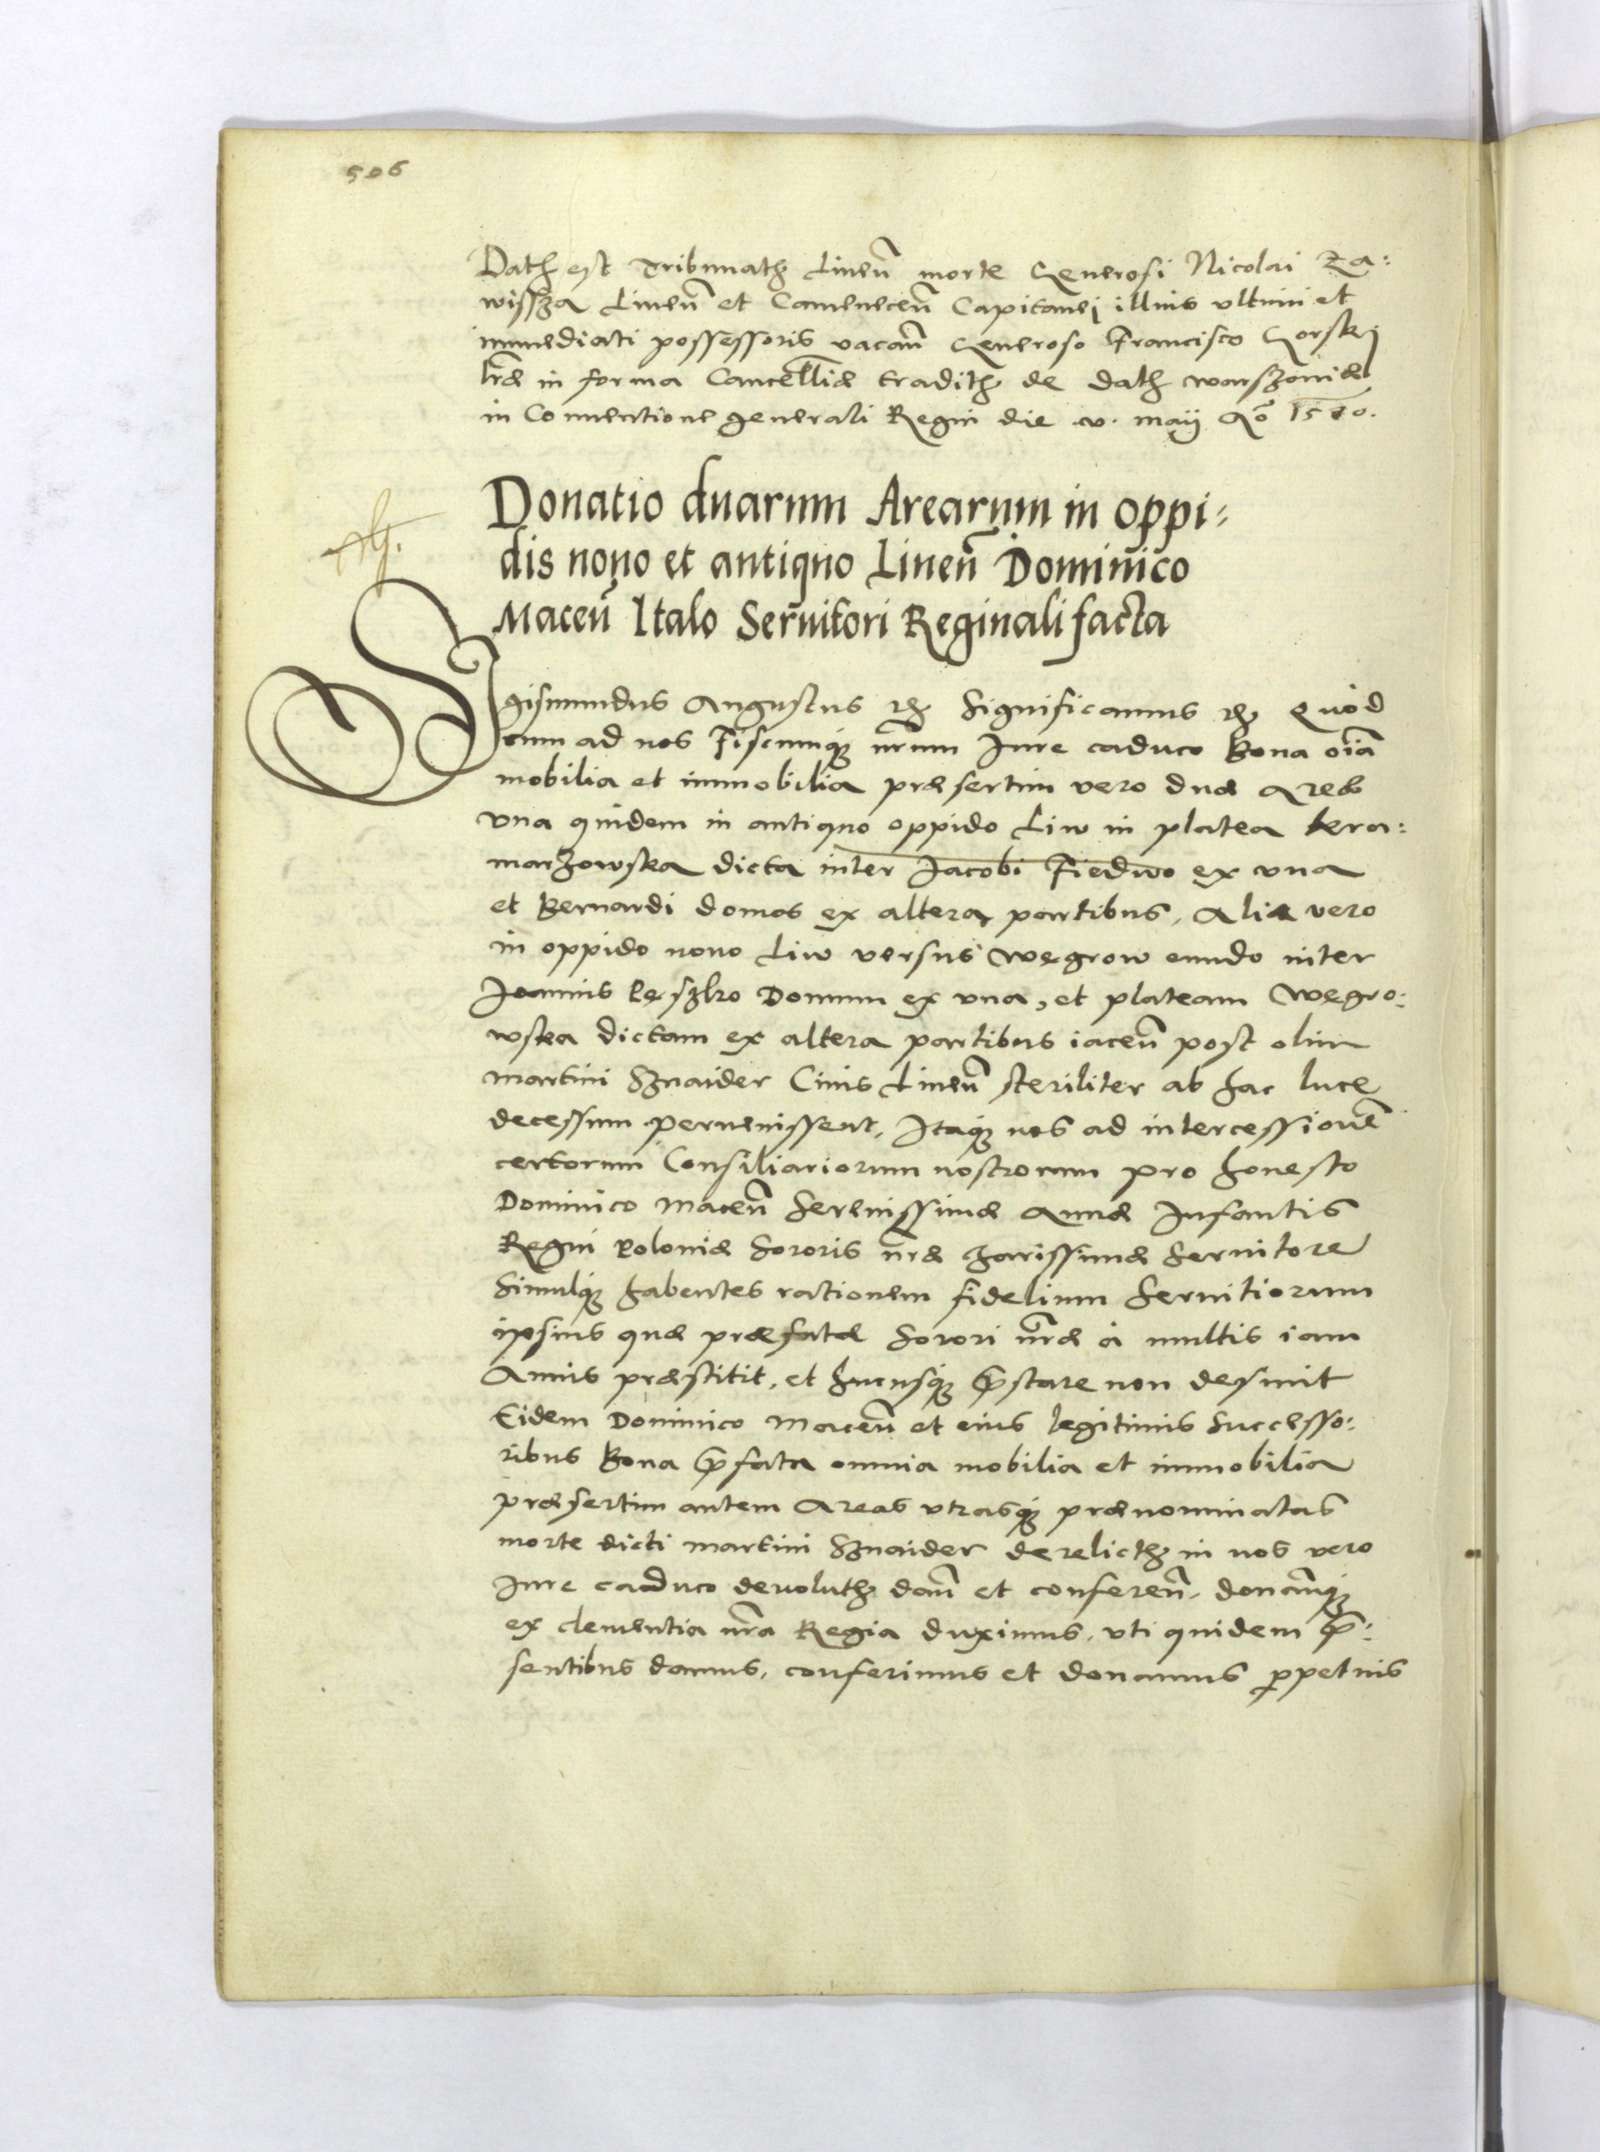 506
Datꝫ est Tribunatꝫ Liueñ morte Generosi Nicolai Za:
wissza Liueñ et Cameneceñ Capitanei illius vltimi et
immediati possessoris vacañ Generoso Francisco Gorskj
lr̃æ in forma Cancellr̃iæ traditꝫ de datꝫ warszouiæ
in Conuentione generali Regni die v. maij Aõ 1570.
Donatio duarum Arearum in oppi⸗
dis nouo et antiquo Liueñ Dominico
Maceñ Italo Seruitori Reginali facta
Sigismundus Augustus ꝛꝫ Significamus ꝛꝫ Quòd
cum ad nos Fiscumqꝫ nr̃um Iure caduco Bona oĩa
mobilia et immobilia præsertim vero duæ Areæ
vna quidem in antiquo oppido Liw in platea kra:
marzowska dicta inter Jacobi Fiedwo ex vna
et Bernardi domos ex altera partibus, Alia vero
in oppido nouo Liw versus Wegrow eundo inter
Joannis Domum ex vna, et plateam Wegro:
wska dictam ex altera partibus iaceñ post olim
martini Sznaider Ciuis Liueñ steriliter ab hac luce
decessum peruenissent, Itaqꝫ nos ad intercessionẽ
certorum Consiliariorum nostrorum pro honesto
Dominico Maceñ Serenissimæ Annæ Infantis
Regni Poloniæ Sororis nr̃æ charissimæ Seruitore
Simulqꝫ habentes rationem fidelium Seruitiorum
ipsius quæ præfatæ Sorori nr̃æ à multis iam
Annis præstitit, et hucusqꝫ p̃stare non desinit
Eidem Dominico Maceñ et eius legitimis Successo:
ribus Bona p̃fata omnia mobilia et immobilia
præsertim autem Areas vtrasqꝫ prænominatas
morte dicti martini Sznaider derelictꝫ in nos vero
Iure caduco deuolutꝫ dañ et confereñ, donañqꝫ
ex clementia nr̃a Regia duximus, vti quidem p̃:
sentibus damus, conferimus et donamus ꝑpetuis